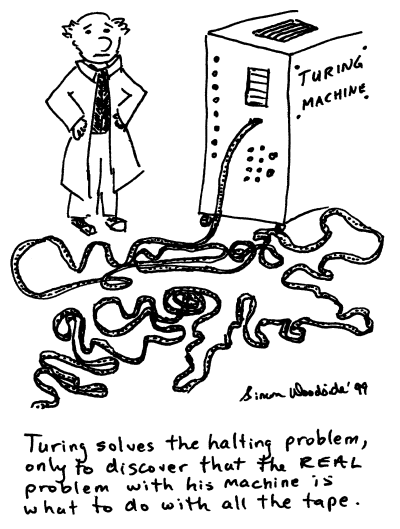 TURING
MACHINE
Simon Woodside '99
Turing solves the halting problem,
only to discover that the REAL
problem with his machine is
what to do with all the tape.